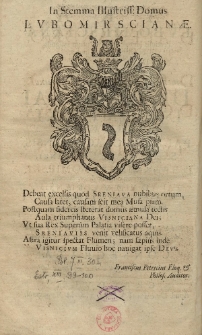 In Stemma Illustriss: Domus
LVBOMIRSCIANÆ.
Debent excelsis quod SRENIAVA nubibus ortum,
Causa latet, causam scit mea Musa piam.
Postquam sidereis steterat domus æmula tectis
Aula triumphantis VISNICIANA Dei.
Ut sua Rex Superum Palatia visere posset,
SRENIAVIUS venit velificatus aquis.
Astra igitur spectat Flumen; nam sæpius inde
VISNICIUM Fluvio hoc navigat ipse DEVS.
Franciscus Petricius Eloq. et
Philos. Auditor.